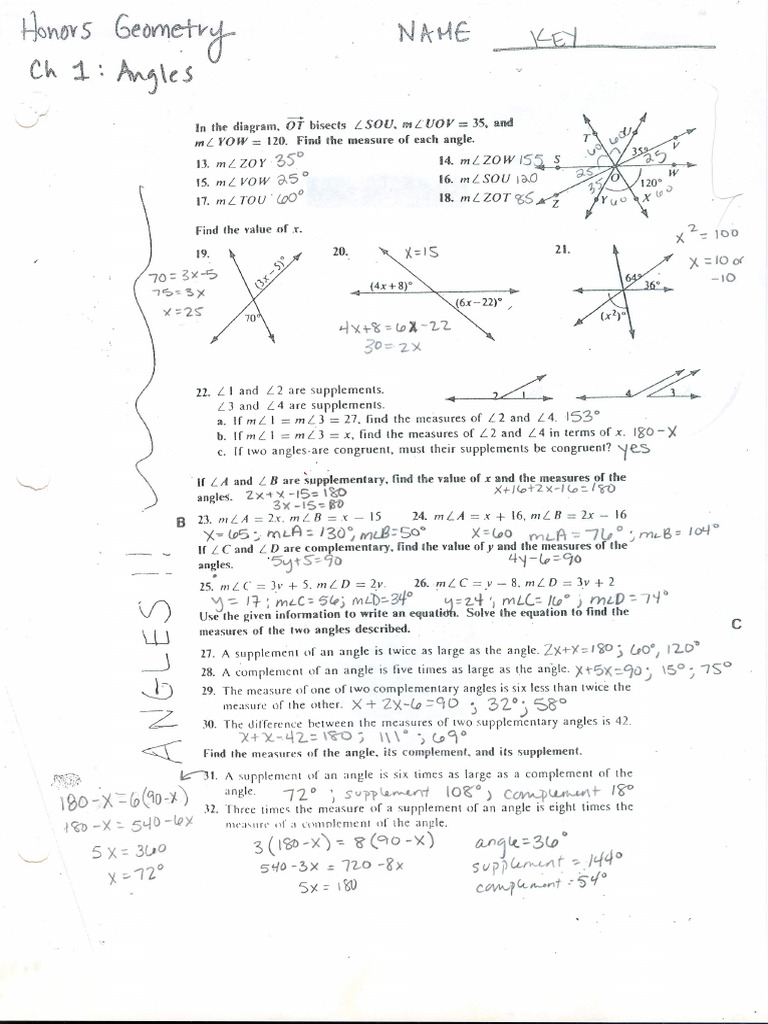 Honors Geometry NAME KEY
Ch 1: Angles
In the diagram, OT bisects ∠SOU, m∠UOV = 35, and
m∠YOW = 120. Find the measure of each angle.
13. m∠ZOY 35° 14. m∠ZOW 155
15. m∠VOW 25° 16. m∠SOU 120
17. m∠TOU 60° 18. m∠ZOT 85
T U V S W O Z Y X
60 60 35° 25 25 35 60 120° 60
Find the value of x.
x² = 100
x = 10 or
-10
19. 20. x=15 21.
70 = 3x-5
75 = 3x
x = 25
(3x – 5)° 70°
(4x + 8)° (6x – 22)°
4x+8 = 6x-22
30 = 2x
64° 36° (x²)°
22. ∠1 and ∠2 are supplements.
∠3 and ∠4 are supplements.
2 1 4 3
a. If m∠1 = m∠3 = 27, find the measures of ∠2 and ∠4. 153°
b. If m∠1 = m∠3 = x, find the measures of ∠2 and ∠4 in terms of x. 180-x
c. If two angles are congruent, must their supplements be congruent? yes
If ∠A and ∠B are supplementary, find the value of x and the measures of the
angles. 2x+x-15=180 x+16+2x-16=180
3x-15=180
B 23. m∠A = 2x, m∠B = x – 15 24. m∠A = x + 16, m∠B = 2x – 16
x=65; m∠A=130°, m∠B=50° x=60 m∠A=76°; m∠B=104°
If ∠C and ∠D are complementary, find the value of y and the measures of the
angles. 5y+5=90 4y-6=90
25. m∠C = 3y + 5, m∠D = 2y. 26. m∠C = y – 8, m∠D = 3y + 2
y=17; m∠C=56; m∠D=34° y=24; m∠C=16°; m∠D=74°
Use the given information to write an equation. Solve the equation to find the
measures of the two angles described.
C
27. A supplement of an angle is twice as large as the angle. 2x+x=180; 60°, 120°
28. A complement of an angle is five times as large as the angle. x+5x=90; 15°; 75°
29. The measure of one of two complementary angles is six less than twice the
measure of the other. x + 2x-6=90; 32°; 58°
30. The difference between the measures of two supplementary angles is 42.
x+x-42=180; 111°; 69°
ANGLES!!
Find the measures of the angle, its complement, and its supplement.
31. A supplement of an angle is six times as large as a complement of the
angle. 72°; supplement 108°; complement 18°
180-x=6(90-x)
180-x = 540-6x
5x = 360
x = 72°
32. Three times the measure of a supplement of an angle is eight times the
measure of a complement of the angle.
3(180-x) = 8(90-x) angle=36°
540-3x = 720-8x supplement = 144°
5x = 180 complement = 54°